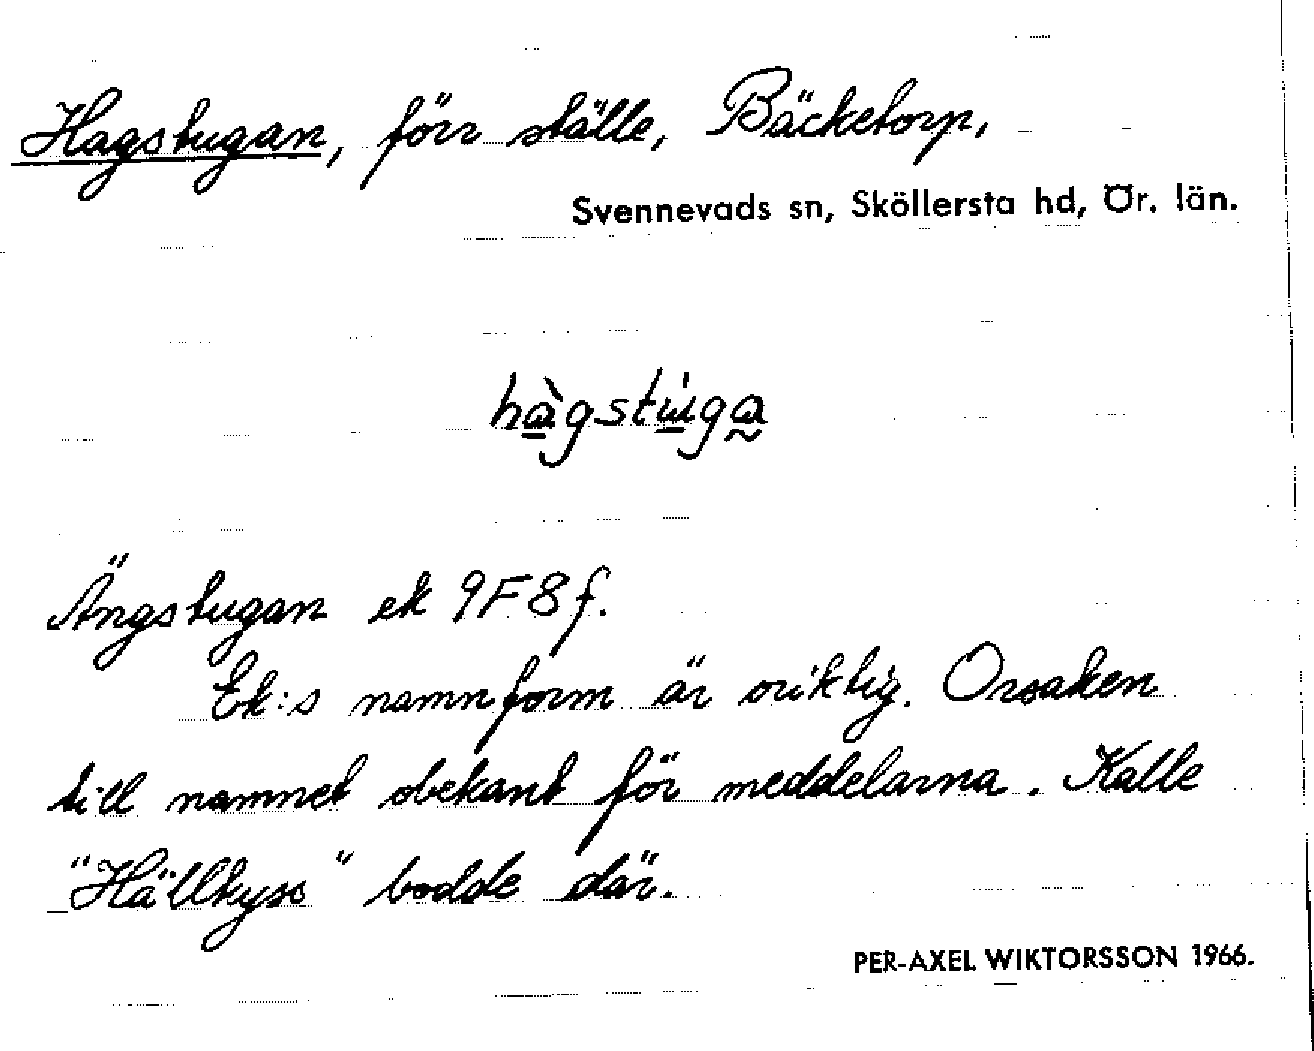 Hagstugan, förr ställe, Bäcketorp,
Svennevads sn, Sköllersta hd, Ör. län.
hàgstu̍ga
Ängstugan ek 9F8f.
Ek:s namnform är oriktig. Orsaken
till namnet obekant för meddelarna. Kalle
"Hällkyss" bodde där.
PER-AXEL WIKTORSSON 1966.